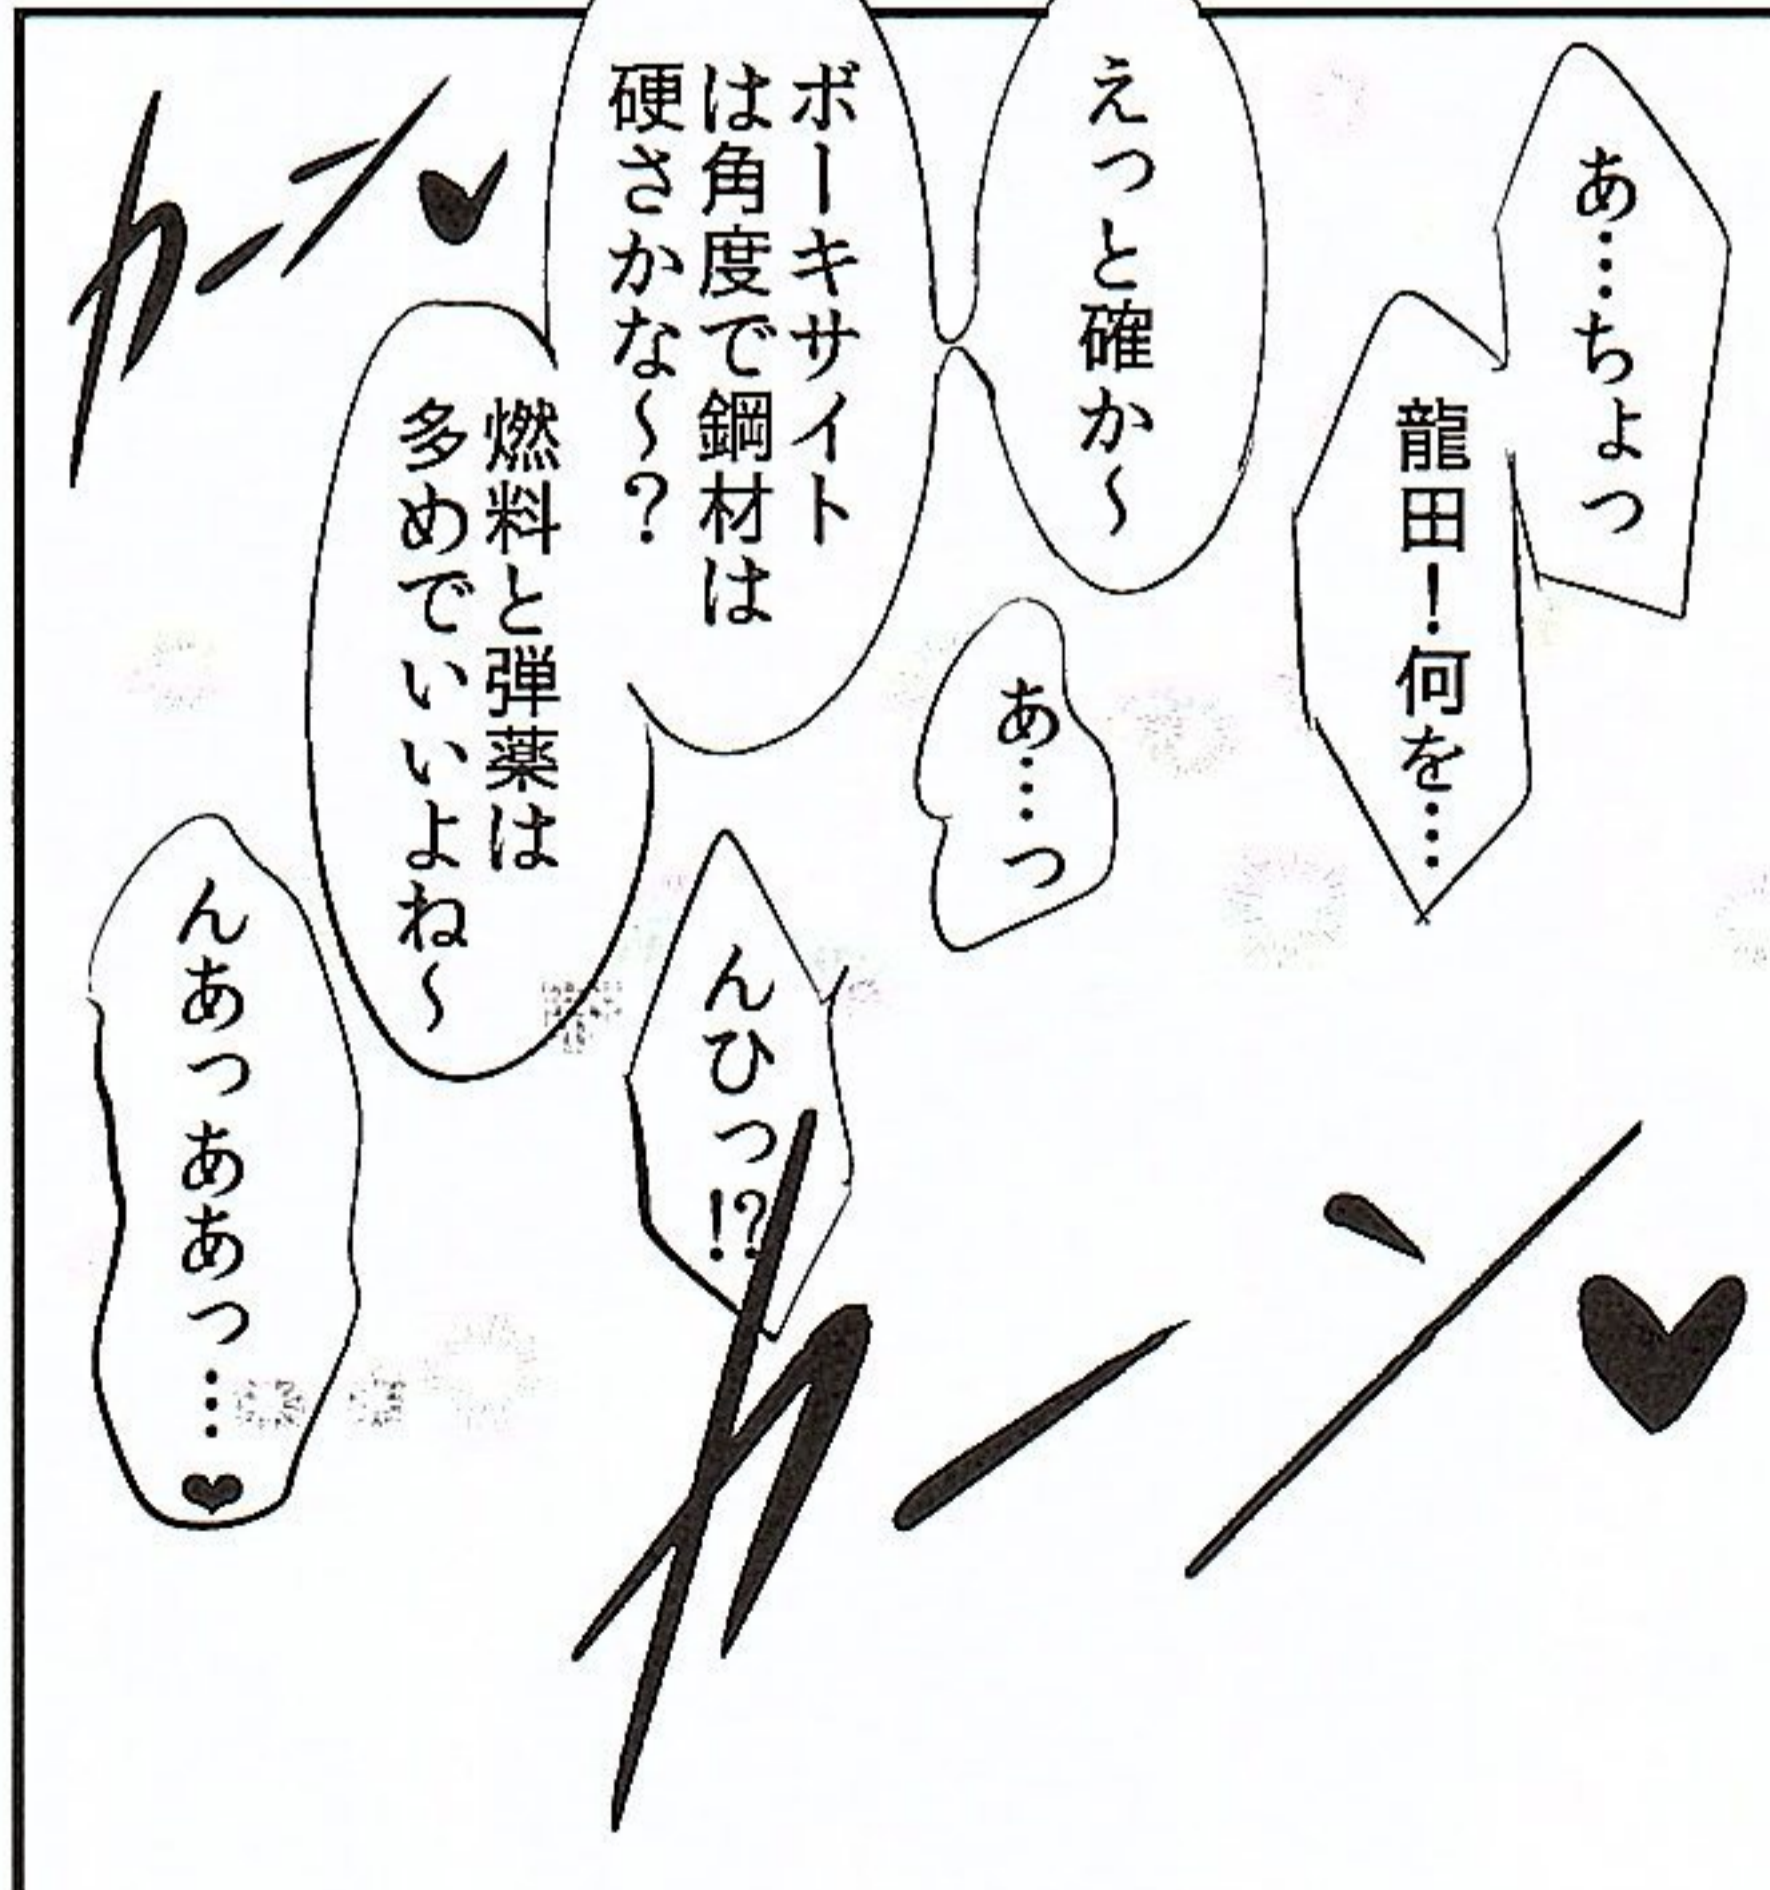 あ…ちょっ
龍田！何を…
えっと確か～
ボーキサイト
は角度で鋼材は
硬さかな～？
あ…っ
燃料と弾薬は
多めでいいよね～
カーン♥
んひっ⁉
んあっああっ…♥
カーン♥